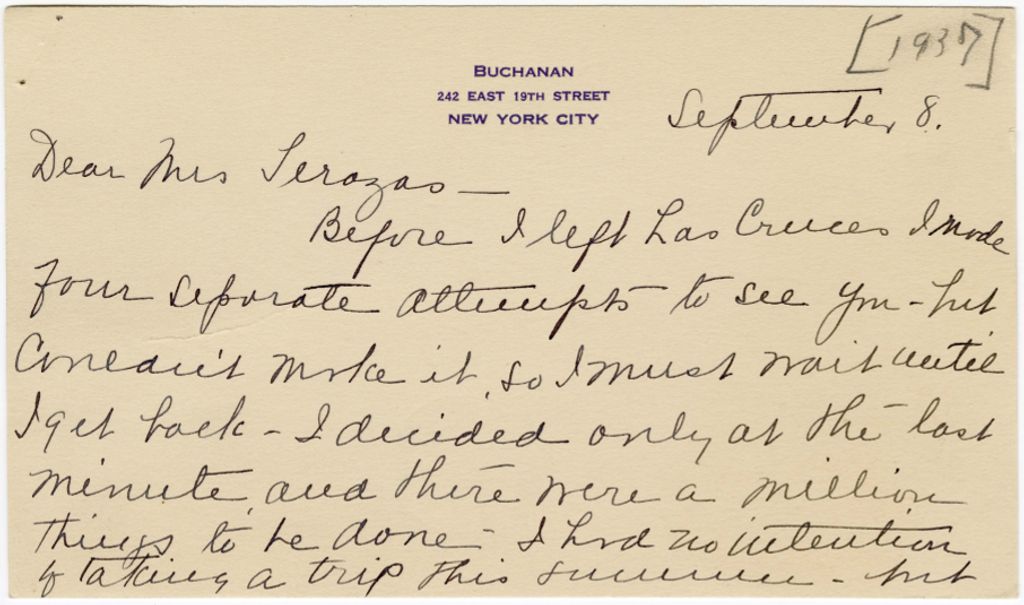 [1937]
BUCHANAN
242 EAST 19TH STREET
NEW YORK CITY
September 8.
Dear Mrs Terazas —
Before I left Las Cruces I made
four separate attempts to see you - but
Couldn't make it, so I must wait until
I get back - I decided only at the last
minute and there were a million
things to be done - I had no intention
of taking a trip this summer - but